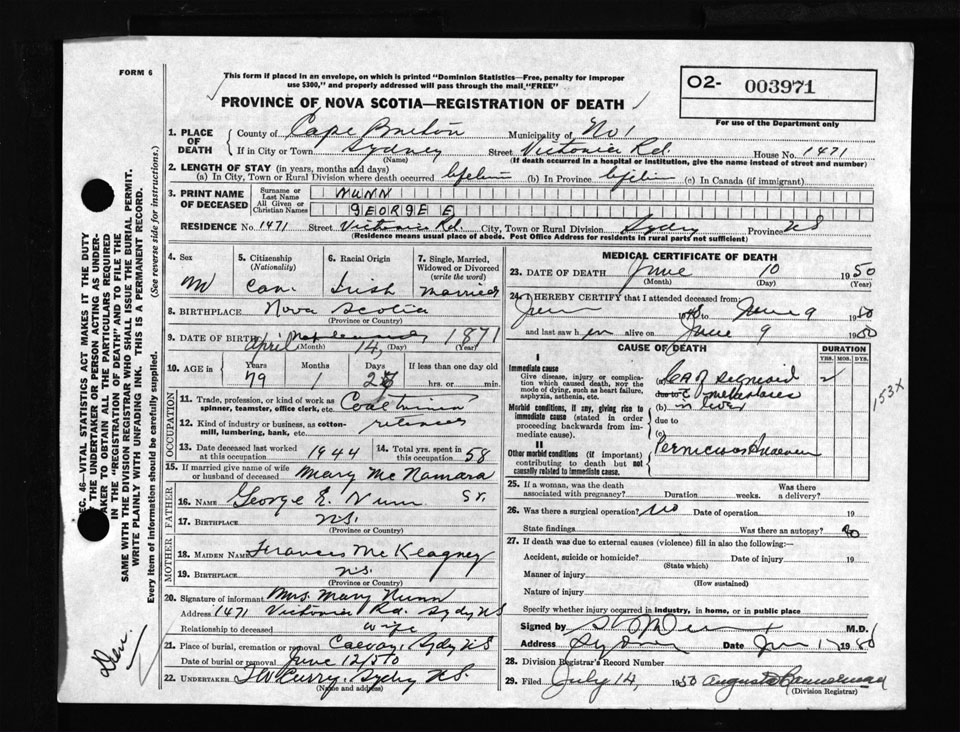 FORM 6
This form if placed in an envelope, on which is printed "Dominion Statistics—Free, penalty for improper
use $300," and properly addressed will pass through the mail "FREE"
02- 003971
For use of the Department only
PROVINCE OF NOVA SCOTIA—REGISTRATION OF DEATH
1. PLACE OF DEATH
County of Cape Breton Municipality of No 1
If in City or Town Sydney Street Victoria Rd. House No. 1471
(Name) (If death occurred in a hospital or institution, give the name instead of street and number)
2. LENGTH OF STAY (in years, months and days)
(a) In City, Town or Rural Division where death occurred (b) In Province (c) In Canada (if immigrant)
3. PRINT NAME OF DECEASED
Surname or Last Name NUNN
All Given or Christian Names GEORGE E
RESIDENCE No. 1471 Street Victoria Rd. City, Town or Rural Division Sydney Province NS
(Residence means usual place of abode. Post Office Address for residents in rural parts not sufficient)
4. Sex M
5. Citizenship (Nationality) Can.
6. Racial Origin Irish
7. Single, Married, Widowed or Divorced (write the word) Married
8. BIRTHPLACE Nova Scotia
(Province or Country)
9. DATE OF BIRTH April 14, 1871
(Month) (Day) (Year)
10. AGE in Years Months Days If less than one day old
79 1 hrs. or min.
OCCUPATION
11. Trade, profession, or kind of work as spinner, teamster, office clerk, etc. Coal miner
12. Kind of industry or business, as cotton-mill, lumbering, bank, etc. retired
13. Date deceased last worked at this occupation 1944
14. Total yrs. spent in this occupation 58
15. If married give name of wife or husband of deceased Mary McNamara
FATHER
16. NAME George E. Nunn Sr.
17. BIRTHPLACE N.S.
(Province or Country)
MOTHER
18. MAIDEN NAME Frances McKeagney
19. BIRTHPLACE N.S.
(Province or Country)
20. Signature of informant Mrs. Mary Nunn
Address 1471 Victoria Rd. Sydy NS
Relationship to deceased wife
21. Place of burial, cremation or removal Calvary, Sydy NS
Date of burial or removal June 12/50
22. UNDERTAKER T W Curry. Sydy NS.
(Name and address)
MEDICAL CERTIFICATE OF DEATH
23. DATE OF DEATH June 10 1950
(Month) (Day) (Year)
24. I HEREBY CERTIFY that I attended deceased from:
June to June 9 1950
and last saw h im alive on June 9 1950
CAUSE OF DEATH
DURATION
YRS. MOS. DYS.
I
Immediate cause
Give disease, injury or complication which caused death, not the mode of dying, such as heart failure, asphyxia, asthenia, etc.
(a) Ca of Sigmoid
due to c metastases
(b) in liver
Morbid conditions, if any, giving rise to immediate cause (stated in order proceeding backwards from immediate cause).
due to
(c)
II
Other morbid conditions (if important) contributing to death but not causally related to immediate cause.
Pernicious Anaemia
153X
25. If a woman, was the death associated with pregnancy? Duration weeks. Was there a delivery?
26. Was there a surgical operation? No Date of operation 19
State findings Was there an autopsy? no
27. If death was due to external causes (violence) fill in also the following:—
Accident, suicide or homicide? Date of injury 19
(State which)
Manner of injury
(How sustained)
Nature of injury
Specify whether injury occurred in industry, in home, or in public place
Signed by M.D.
Address Sydney Date 1950
28. Division Registrar's Record Number
29. Filed July 14, 1950
(Division Registrar)
SEC. 46—VITAL STATISTICS ACT MAKES IT THE DUTY
OF THE UNDERTAKER OR PERSON ACTING AS UNDER-
TAKER TO OBTAIN ALL THE PARTICULARS REQUIRED
IN THE "REGISTRATION OF DEATH" AND TO FILE THE
SAME WITH THE DIVISION REGISTRAR WHO SHALL ISSUE THE BURIAL PERMIT.
WRITE PLAINLY WITH UNFADING INK. THIS IS A PERMANENT RECORD.
Every item of information should be carefully supplied. (See reverse side for instructions.)